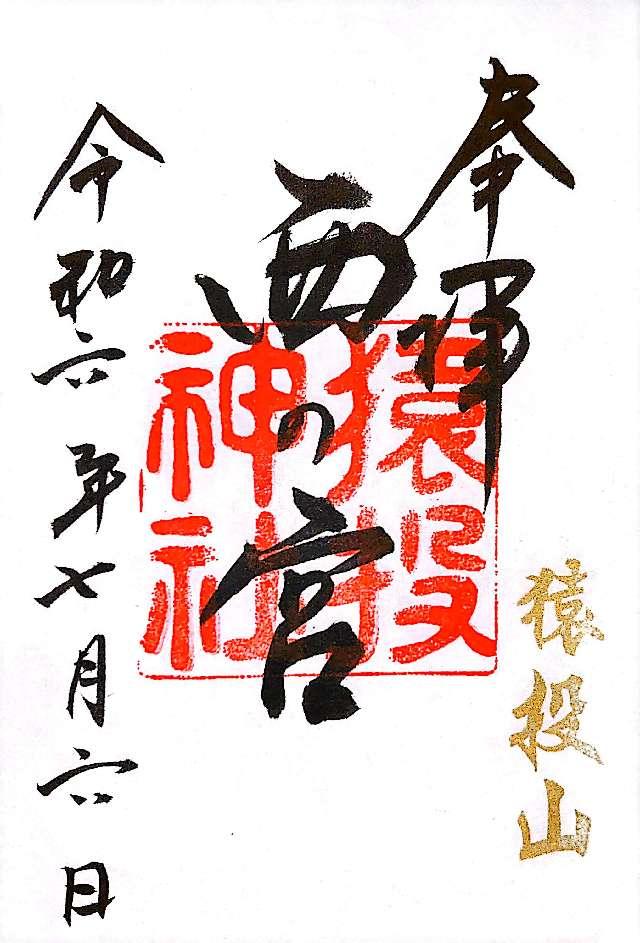 奉拝
猿投山
西の宮
猿投
神社
令和六年七月六日